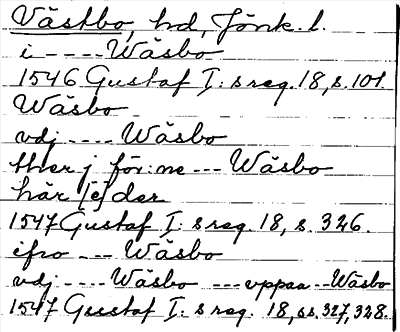 Västbo, hd, Jönk. l.
i ---- Wäsbo
1546 Gustaf I:s reg. 18, s. 101.
Wäsbo
vdj ---- Wäsbo
ther j för:ne --- Wäsbo
här [e]der
1547 Gustaf I:s reg. 18, s. 326.
ifro --- Wäsbo
vdj ---- Wäsbo --- vppaa -- Wäsbo
1547 Gustaf I:s reg. 18, ss. 327, 328.